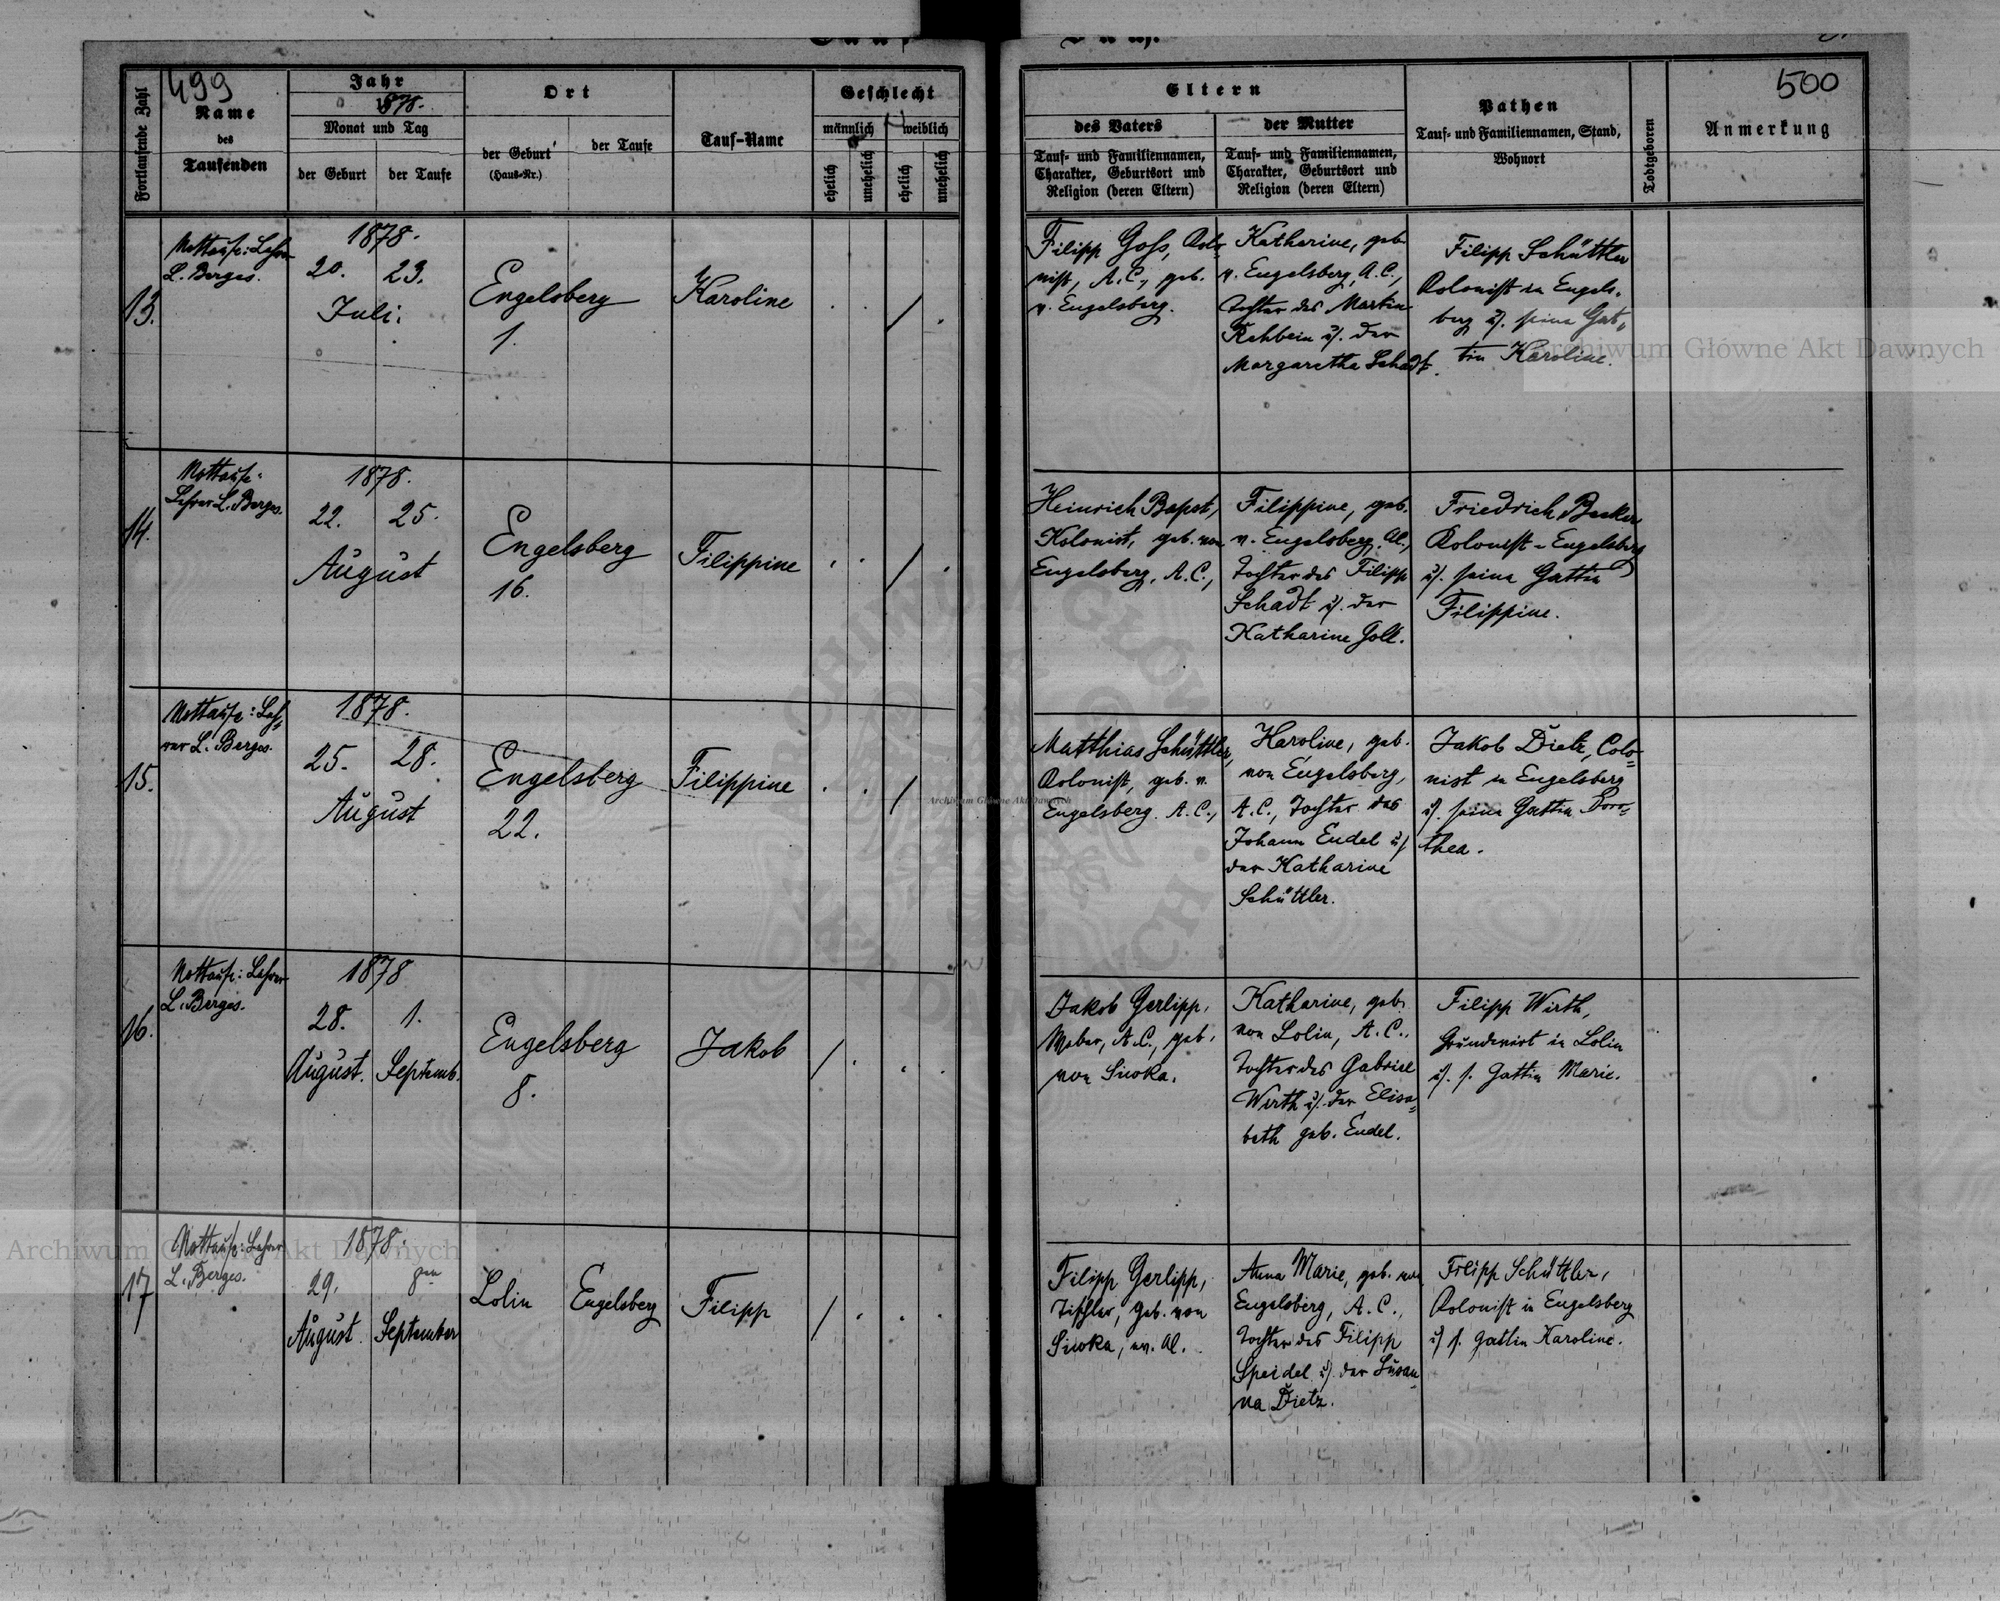 499
Fortlaufende Zahl
Name
des
Taufenden
Jahr
1878.
Monat und Tag
der Geburt
der Taufe
Ort
der Geburt
(Haus-Nr.)
der Taufe
Tauf-Name
Geschlecht
männlich
weiblich
ehelich
unehelich
ehelich
unehelich
Eltern
des Vaters
Tauf- und Familiennamen,
Charakter, Geburtsort und
Religion (deren Eltern)
der Mutter
Tauf- und Familiennamen,
Charakter, Geburtsort und
Religion (deren Eltern)
Pathen
Tauf- und Familiennamen, Stand,
Wohnort
Todtgeboren
Anmerkung
500
13.
Nottaufe: Lehrer
L. Berges.
1878.
20. 23.
Juli.
Engelsberg
1.
Karoline
Filipp Goss, Kolo-
nist, A.C., geb.
v. Engelsberg.
Katharine, geb.
v. Engelsberg, A.C.,
Tochter des Martin
Rehbein u. der
Margaretha Schadt.
Filipp Schüttler
Kolonist in Engels-
berg u. seine Gat-
tin Karoline.
14.
Nottaufe:
Lehrer L. Berges.
1878.
22. 25.
August
Engelsberg
16.
Filippine
Heinrich Bapst,
Kolonist, geb. von
Engelsberg, A.C.,
Filippine, geb.
v. Engelsberg, AC.,
Tochter des Filipp
Schadt u. der
Katharine Goll.
Friedrich Becker
Kolonist - Engelsberg
u. seine Gattin
Filippine.
15.
Nottaufe: Leh-
rer L. Berges.
1878.
25. 28.
August
Engelsberg
22.
Filippine
Matthias Schüttler,
Kolonist, geb. v.
Engelsberg A.C.,
Karoline, geb.
von Engelsberg,
A.C., Tochter des
Johann Endel u.
der Katharine
Schüttler.
Jakob Dietz, Colo-
nist in Engelsberg
u. seine Gattin Doro-
thea.
16.
Nottaufe: Lehrer
L. Berges.
1878
28. 1.
August. Septemb.
Engelsberg
8.
Jakob
Jakob Gerlipp,
Weber, A.C., geb.
von Siwka.
Katharine, geb.
von Lolin, A.C.,
Tochter des Gabriel
Wirth u. der Elisa-
beth geb. Endel.
Filipp Wirth,
Grundwirt in Lolin
u. s. Gattin Marie.
17
Nottaufe: Lehrer
L. Berges.
1878.
29. 8ten
August. September
Lolin
Engelsberg
Filipp
Filipp Gerlipp,
Tischler, geb. von
Siwka, ev. AC.
Anna Marie, geb. von
Engelsberg, A.C.,
Tochter des Filipp
Speidel u. der Susan-
na Dietz.
Filipp Schüttler,
Kolonist in Engelsberg
u. s. Gattin Karoline.
Archiwum Główne Akt Dawnych
Archiwum Główne Akt Dawnych
Archiwum Główne Akt Dawnych